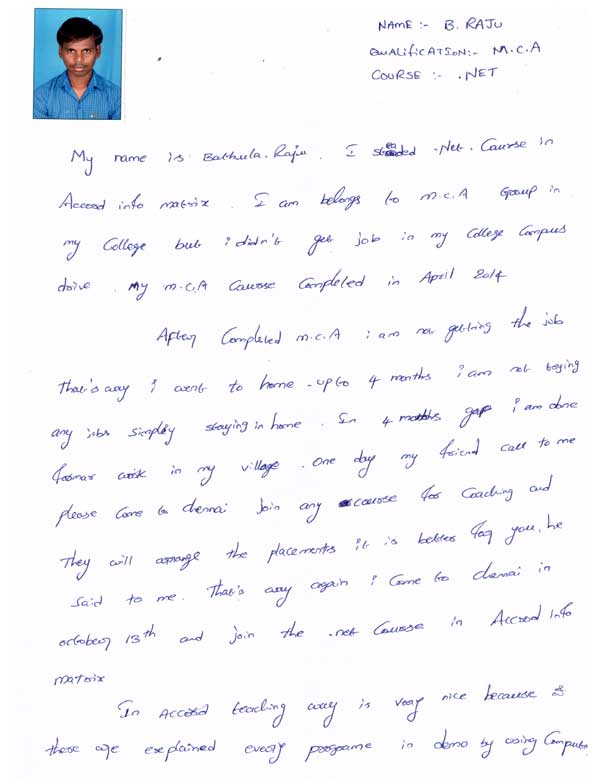 NAME :- B. RAJU
QUALIFICATION:- M.C.A
COURSE :- .NET
My name is Bathula.Raju. I studed .Net. Course in
Accord info matrix. I am belongs to M.C.A Group in
my College but i didn't get job in my College Campus
drive. My M.C.A Course Completed in April 2014
After Completed M.C.A i am not getting the job
That's way i went to home. upto 4 months i am not trying
any jobs simply staying in home. In 4 months gap i am done
former work in my village. One day my friend call to me
please come to chennai join any course for Coaching and
They will arrange the placements it is better for you, he
said to me. That's way again i come to chennai in
october 13th and join the .net Course in Accord Info
matrix
In Accord teaching way is very nice because
there are explained every programe in demo by using Compute